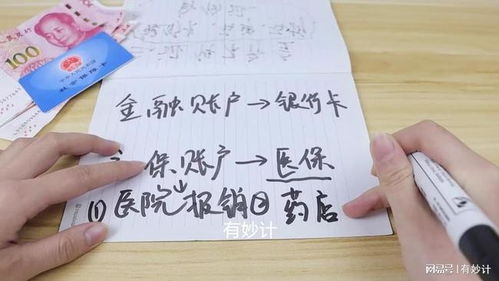 100
社会保障卡
金融账户→银行卡
保账户→医保
(1)医院报销② 药店
有妙计
网易号 | 有妙计